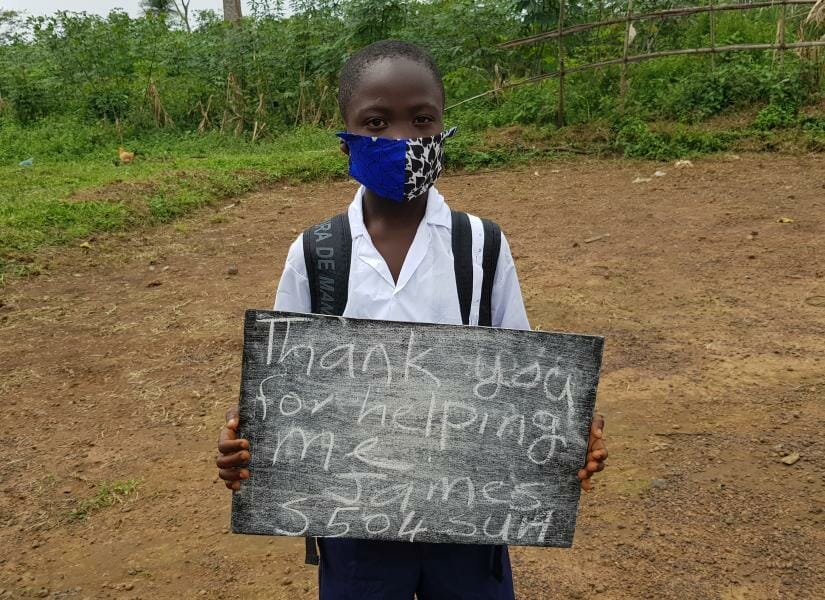 RA DE MAN
Thank you
for helping
me.
James
S504SUH